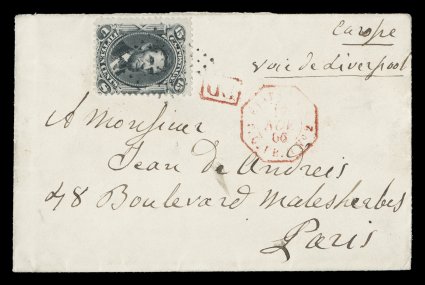 Europe
voie de Liverpool
PD
66
A Monsieur
Jean de Andreis
48 Boulevard Malesherbes
Paris